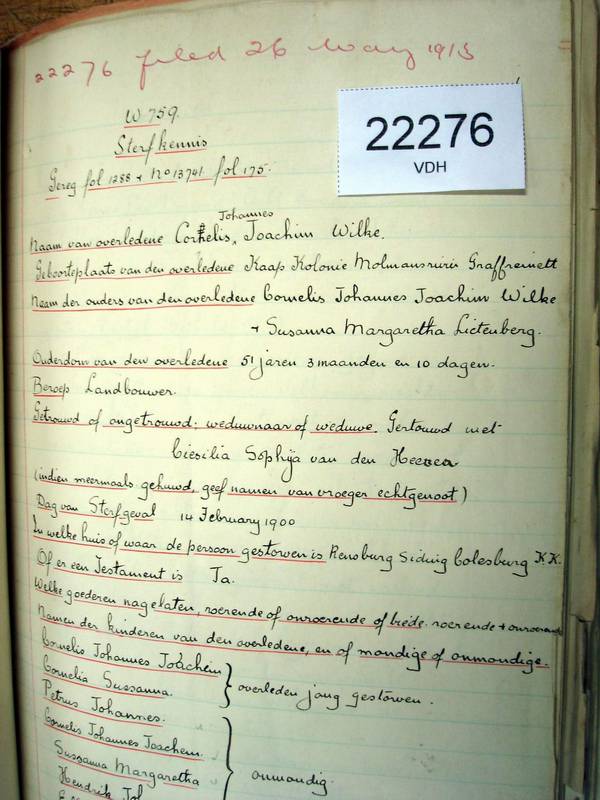 22276 filed 26 May 1915
22276
VDH
W 759.
Sterfkennis
Gereg fol 1288 & No 13741 fol 175.
Johannes
Naam van overledene Cornelis, Joachim Wilke.
Geboorteplaats van den overledene Kaap Kolonie Molmansrivir Graffreinett
Naam der ouders van den overledene Cornelis Johannes Joachim Wilke
+ Susanna Margaretha Lictenberg.
Ouderdom van den overledene 51 jaren 3 maanden en 10 dagen.
Beroep Landbouwer.
Getrouwd of ongetrouwd; weduwnaar of weduwe. Gertouwd met
Ciesilia Sophÿa van den Heever
(indien meermaals gehuwd, geef namen van vroeger echtgenoot)
Dag van Sterfgeval 14 February 1900
In welke huis of waar de persoon gestorven is Rensburg Siding Colesburg K.K.
Of er een Testament is Ja.
Welke goederen nagelaten, roerende of onroerende of biede. roerende + onroerend
Namen der kinderen van den overledene, en of mondige of onmondige.
Cornelis Johannes Joachem
Cornelia Sussanna.
overleden jong gestorven.
Petrus Johannes.
Cornelis Johannes Joachem.
Sussanna Margaretha
onmondig.
Hendrik Joh